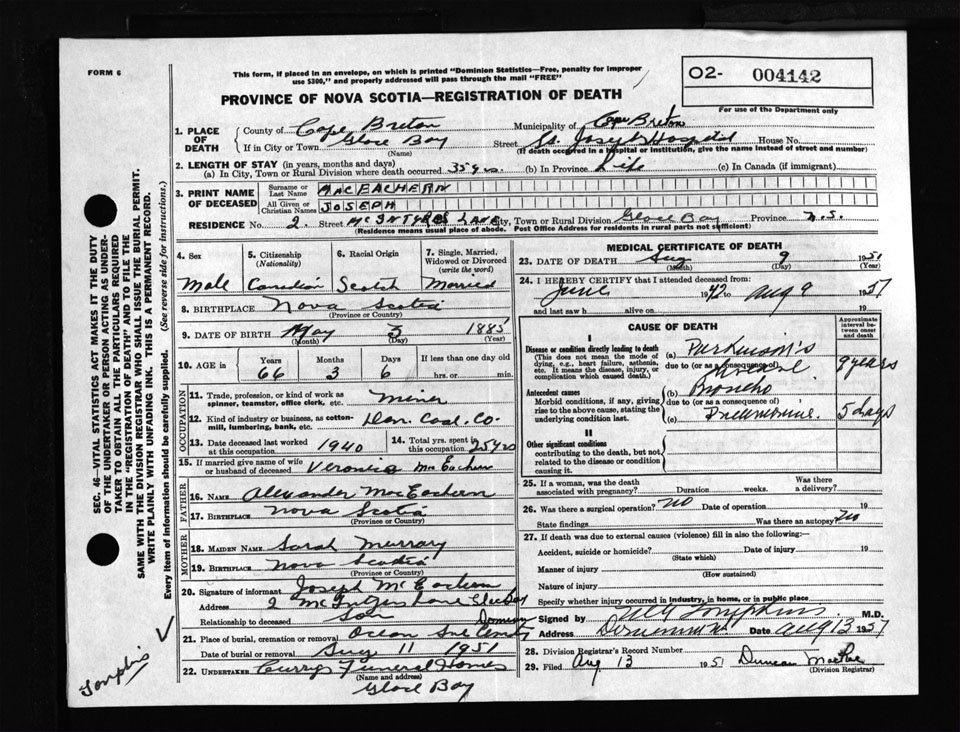 FORM 6
This form, if placed in an envelope, on which is printed "Dominion Statistics—Free, penalty for improper
use $300," and properly addressed will pass through the mail "FREE"
O2- 004142
For use of the Department only
PROVINCE OF NOVA SCOTIA—REGISTRATION OF DEATH
SEC. 46—VITAL STATISTICS ACT MAKES IT THE DUTY
OF THE UNDERTAKER OR PERSON ACTING AS UNDER-
TAKER TO OBTAIN ALL THE PARTICULARS REQUIRED
IN THE "REGISTRATION OF DEATH" AND TO FILE THE
SAME WITH THE DIVISION REGISTRAR WHO SHALL ISSUE THE BURIAL PERMIT.
WRITE PLAINLY WITH UNFADING INK. THIS IS A PERMANENT RECORD.
Every item of information should be carefully supplied. (See reverse side for instructions.)
1. PLACE OF DEATH
County of Cape Breton Municipality of Cape Breton
If in City or Town Glace Bay Street St. Joseph's Hospital House No.
(Name) (If death occurred in a hospital or institution, give the name instead of street and number)
2. LENGTH OF STAY (in years, months and days)
(a) In City, Town or Rural Division where death occurred 35 yrs. (b) In Province Life (c) In Canada (if immigrant)
3. PRINT NAME OF DECEASED
Surname or Last Name MACEACHERN
All Given or Christian Names JOSEPH
RESIDENCE No. 2. Street McINTYRES LANE City, Town or Rural Division Glace Bay Province N.S.
(Residence means usual place of abode. Post Office Address for residents in rural parts not sufficient)
4. Sex
Male
5. Citizenship
(Nationality)
Canadian
6. Racial Origin
Scotch
7. Single, Married,
Widowed or Divorced
(write the word)
Married
8. BIRTHPLACE Nova Scotia
(Province or Country)
9. DATE OF BIRTH May 3 1885
(Month) (Day) (Year)
10. AGE IS Years Months Days If less than one day old
66 3 6 hrs. or min.
OCCUPATION
11. Trade, profession, or kind of work as
spinner, teamster, office clerk, etc. Miner
12. Kind of industry or business, as cotton-
mill, lumbering, bank, etc. Dom. Coal. Co.
13. Date deceased last worked
at this occupation 1940
14. Total yrs. spent in
this occupation 25 yrs
15. If married give name of wife
or husband of deceased Veronica MacEachern
FATHER
16. NAME Alexander MacEachern
17. BIRTHPLACE Nova Scotia
(Province or Country)
MOTHER
18. MAIDEN NAME Sarah Murray
19. BIRTHPLACE Nova Scotia
(Province or Country)
20. Signature of informant Joseph McEachern
Address 2 McIntyres Lane Glace Bay
Relationship to deceased Son
21. Place of burial, cremation or removal
Date of burial or removal Aug 11 1951
22. UNDERTAKER Currys Funeral Homes
(Name and address)
Glace Bay
Tompkins
MEDICAL CERTIFICATE OF DEATH
23. DATE OF DEATH Aug 9 1951
(Month) (Day) (Year)
24. I HEREBY CERTIFY that I attended deceased from:
June 1942 to Aug 9 1951
and last saw h alive on 19
CAUSE OF DEATH
Approximate
interval be-
tween onset
and death
I
Disease or condition directly leading to death
(This does not mean the mode of
dying, e.g., heart failure, asthenia,
etc. It means the disease, injury, or
complication which caused death.)
(a) Parkinson's
due to (or as a consequence of)
Disease 9 years
Antecedent causes
Morbid conditions, if any, giving
rise to the above cause, stating the
underlying condition last.
(b) Broncho
due to (or as a consequence of)
(c) Pneumonia. 5 days
II
Other significant conditions
contributing to the death, but not
related to the disease or condition
causing it.
25. If a woman, was the death
associated with pregnancy? Duration weeks. Was there
a delivery?
26. Was there a surgical operation? no Date of operation 19
State findings Was there an autopsy? no
27. If death was due to external causes (violence) fill in also the following:—
Accident, suicide or homicide? Date of injury 19
(State which)
Manner of injury
(How sustained)
Nature of injury
Specify whether injury occurred in industry, in home, or in public place
Signed by Tompkins M.D.
Address Dominion N.S. Date Aug 13 1951
28. Division Registrar's Record Number
29. Filed Aug 13 1951 Duncan MacRae
(Division Registrar)